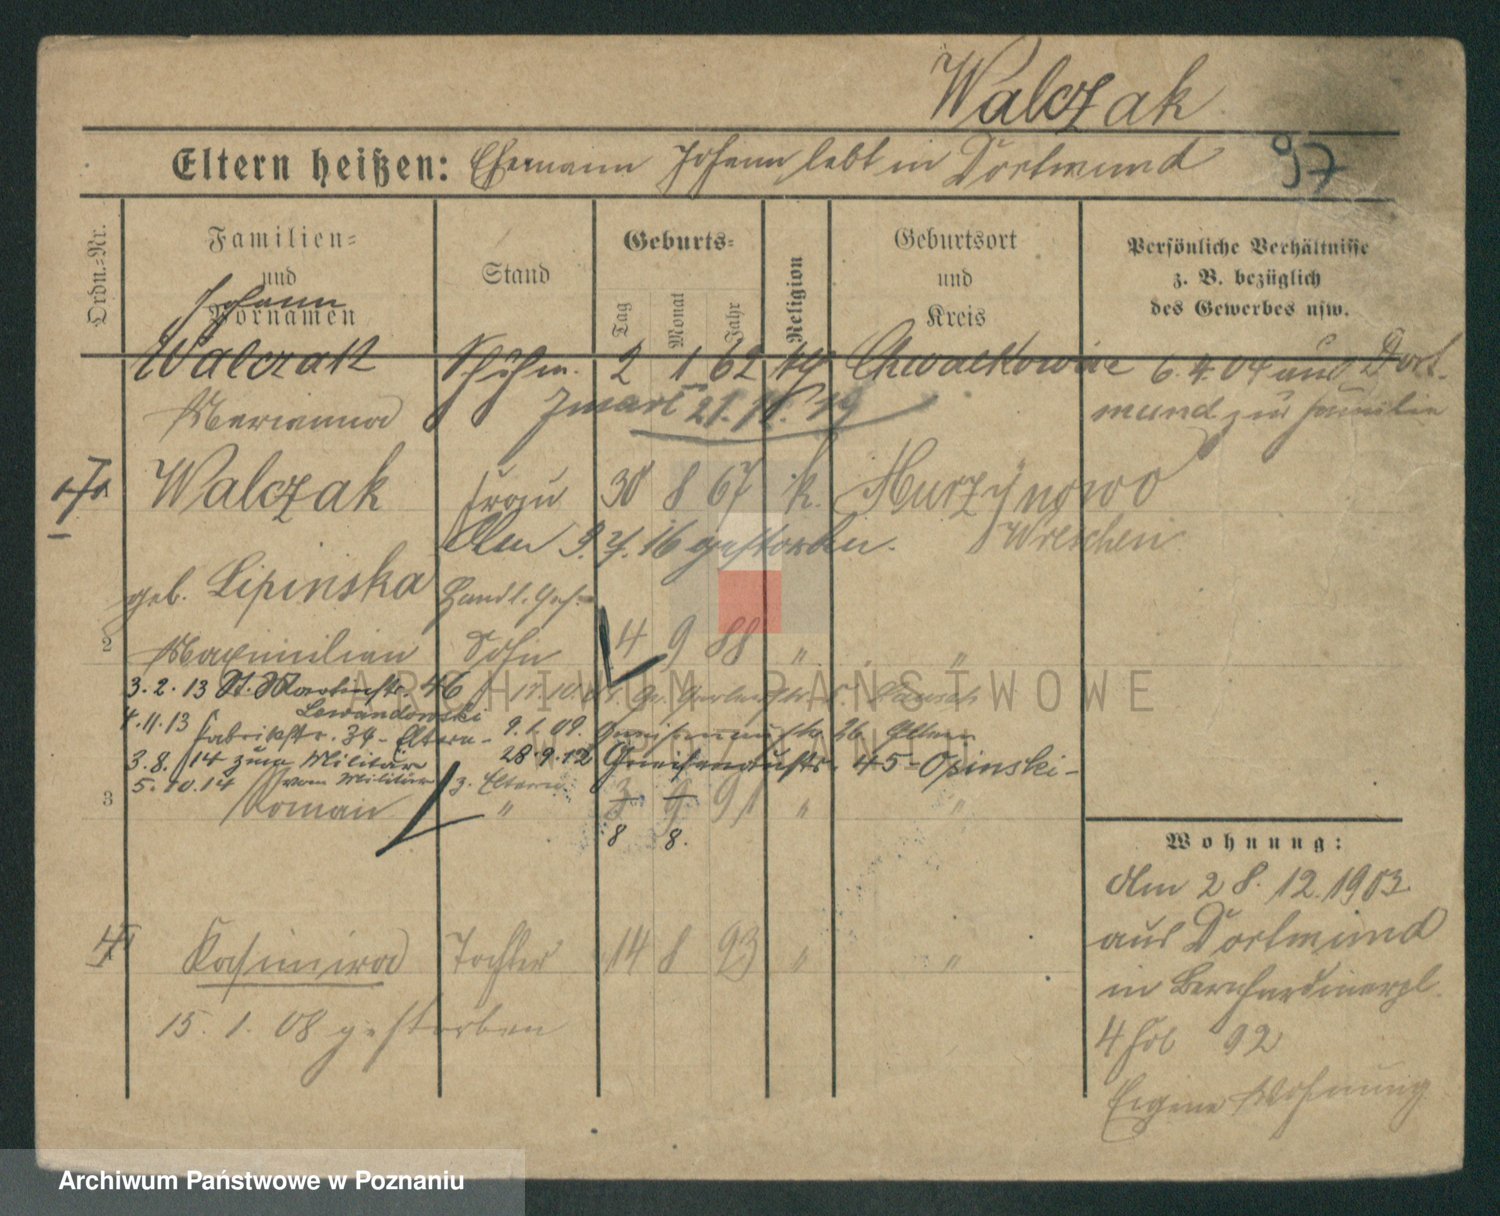 Walczak
Eltern heißen: Ehemann Johann lebt in Dortmund
97
Ordn.-Nr.
Familien-
und
Vornamen
Stand
Geburts-
Tag
Monat
Jahr
Religion
Geburtsort
und
Kreis
Persönliche Verhältnisse
z. B. bezüglich
des Gewerbes usw.
Johann
Walczak
2 1 62
6.4.04 aus Dort-
mund zur Familie
Marianna
Walczak Frau 30 8 67 k. Murzynowo
Wreschen
Am 9. 7. 16 gestorben.
geb. Lipinska
Handl. Geh.
2
Maximilian Sohn 4 9 88 " "
3.2.13 St. Martinstr. 46
Lewandowski
4.11.13 Fabrikstr. 39 - Eltern -
9.1.09. Gneisenaustr. 26 Eltern
3.8.14 zum Militär
28.9.12 Gneisenaustr. 45 - Opinski -
5.10.14 vom Militär z. Eltern
3
Roman " 3 9 91 " "
8 8.
4
Kasimira Tochter 14 8 93 " "
15. 1. 08 gestorben
Wohnung:
Am 28.12.1903
aus Dortmund
in Bernhardinerpl.
4 92
Eigene Wohnung
ARCHIWUM PAŃSTWOWE
W POZNANIU
Archiwum Państwowe w Poznaniu